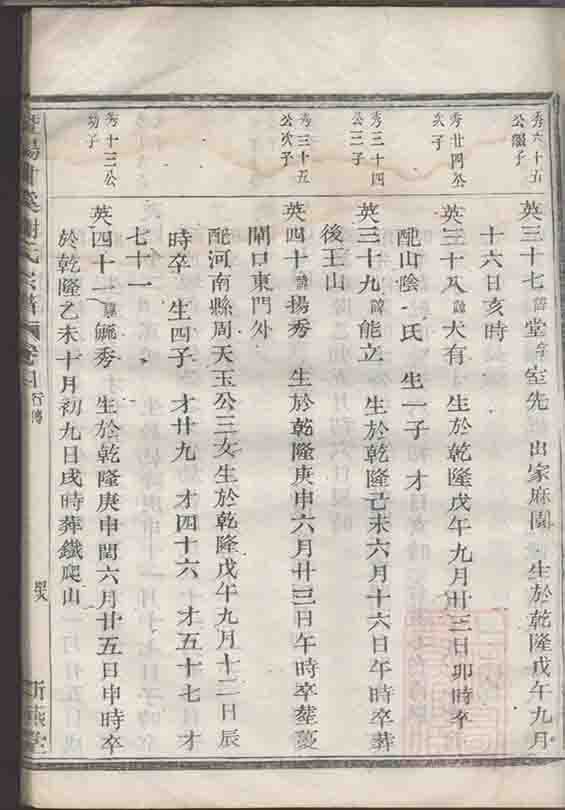 秀六十五
公繼子
英三十七諱堂 室先 出家麻園 生於乾隆戊午九月
十六日亥時
秀廿四公
次子
英三十八諱大有 生於乾隆戊午九月卅三日卯時卒
配山陰 氏 生一子 才
秀三十四
公三子
英三十九諱能立 生於乾隆己未六月十六日午時卒葬
後王山
秀三十五
公次子
英四十諱揚秀 生於乾隆庚申六月廿三日午時卒葬
閘口東門外
配河南縣周天玉公三女生於乾隆戊午九月十二日辰
時卒 生四子 才廿九 才四十六 才五十七 才
七十一
秀十三公
幼子
英四十一諱 秀 生於乾隆庚申閏六月廿五日申時卒
於乾隆乙未十月初九日戌時葬鐵爬山
氏宗譜 卷 行傳